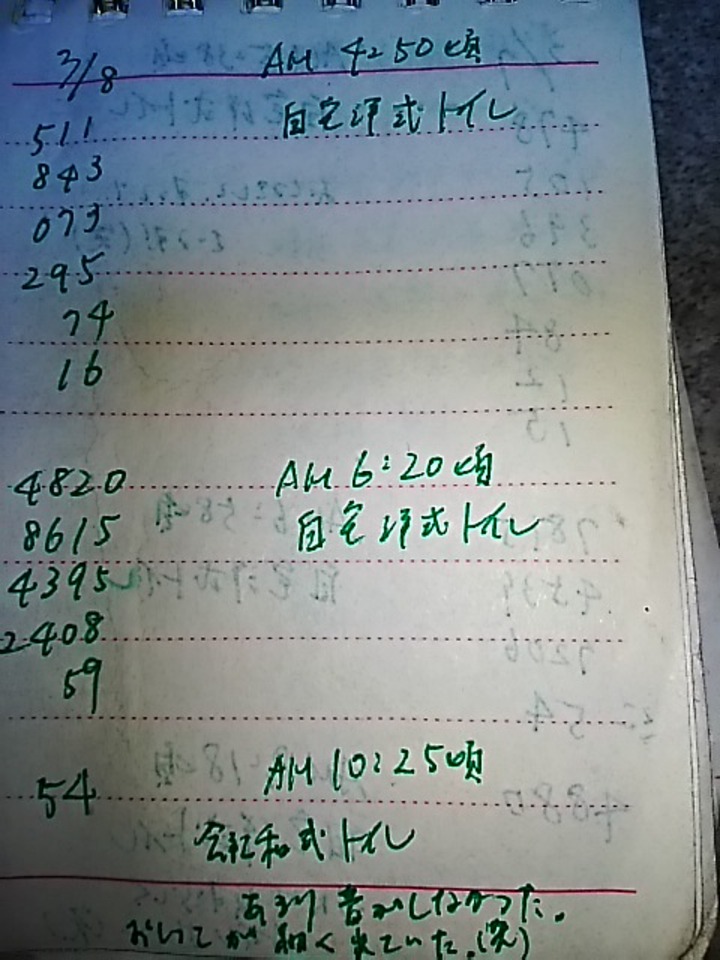 3/8 AM 4:50頃
511 自宅洋式トイレ
843
073
295
74
16
4820 AM 6:20頃
8615 自宅洋式トイレ
4395
2408
59
54 AM 10:25頃
会社和式トイレ
あまり音がしなかった。
が細く出ていた。(笑)